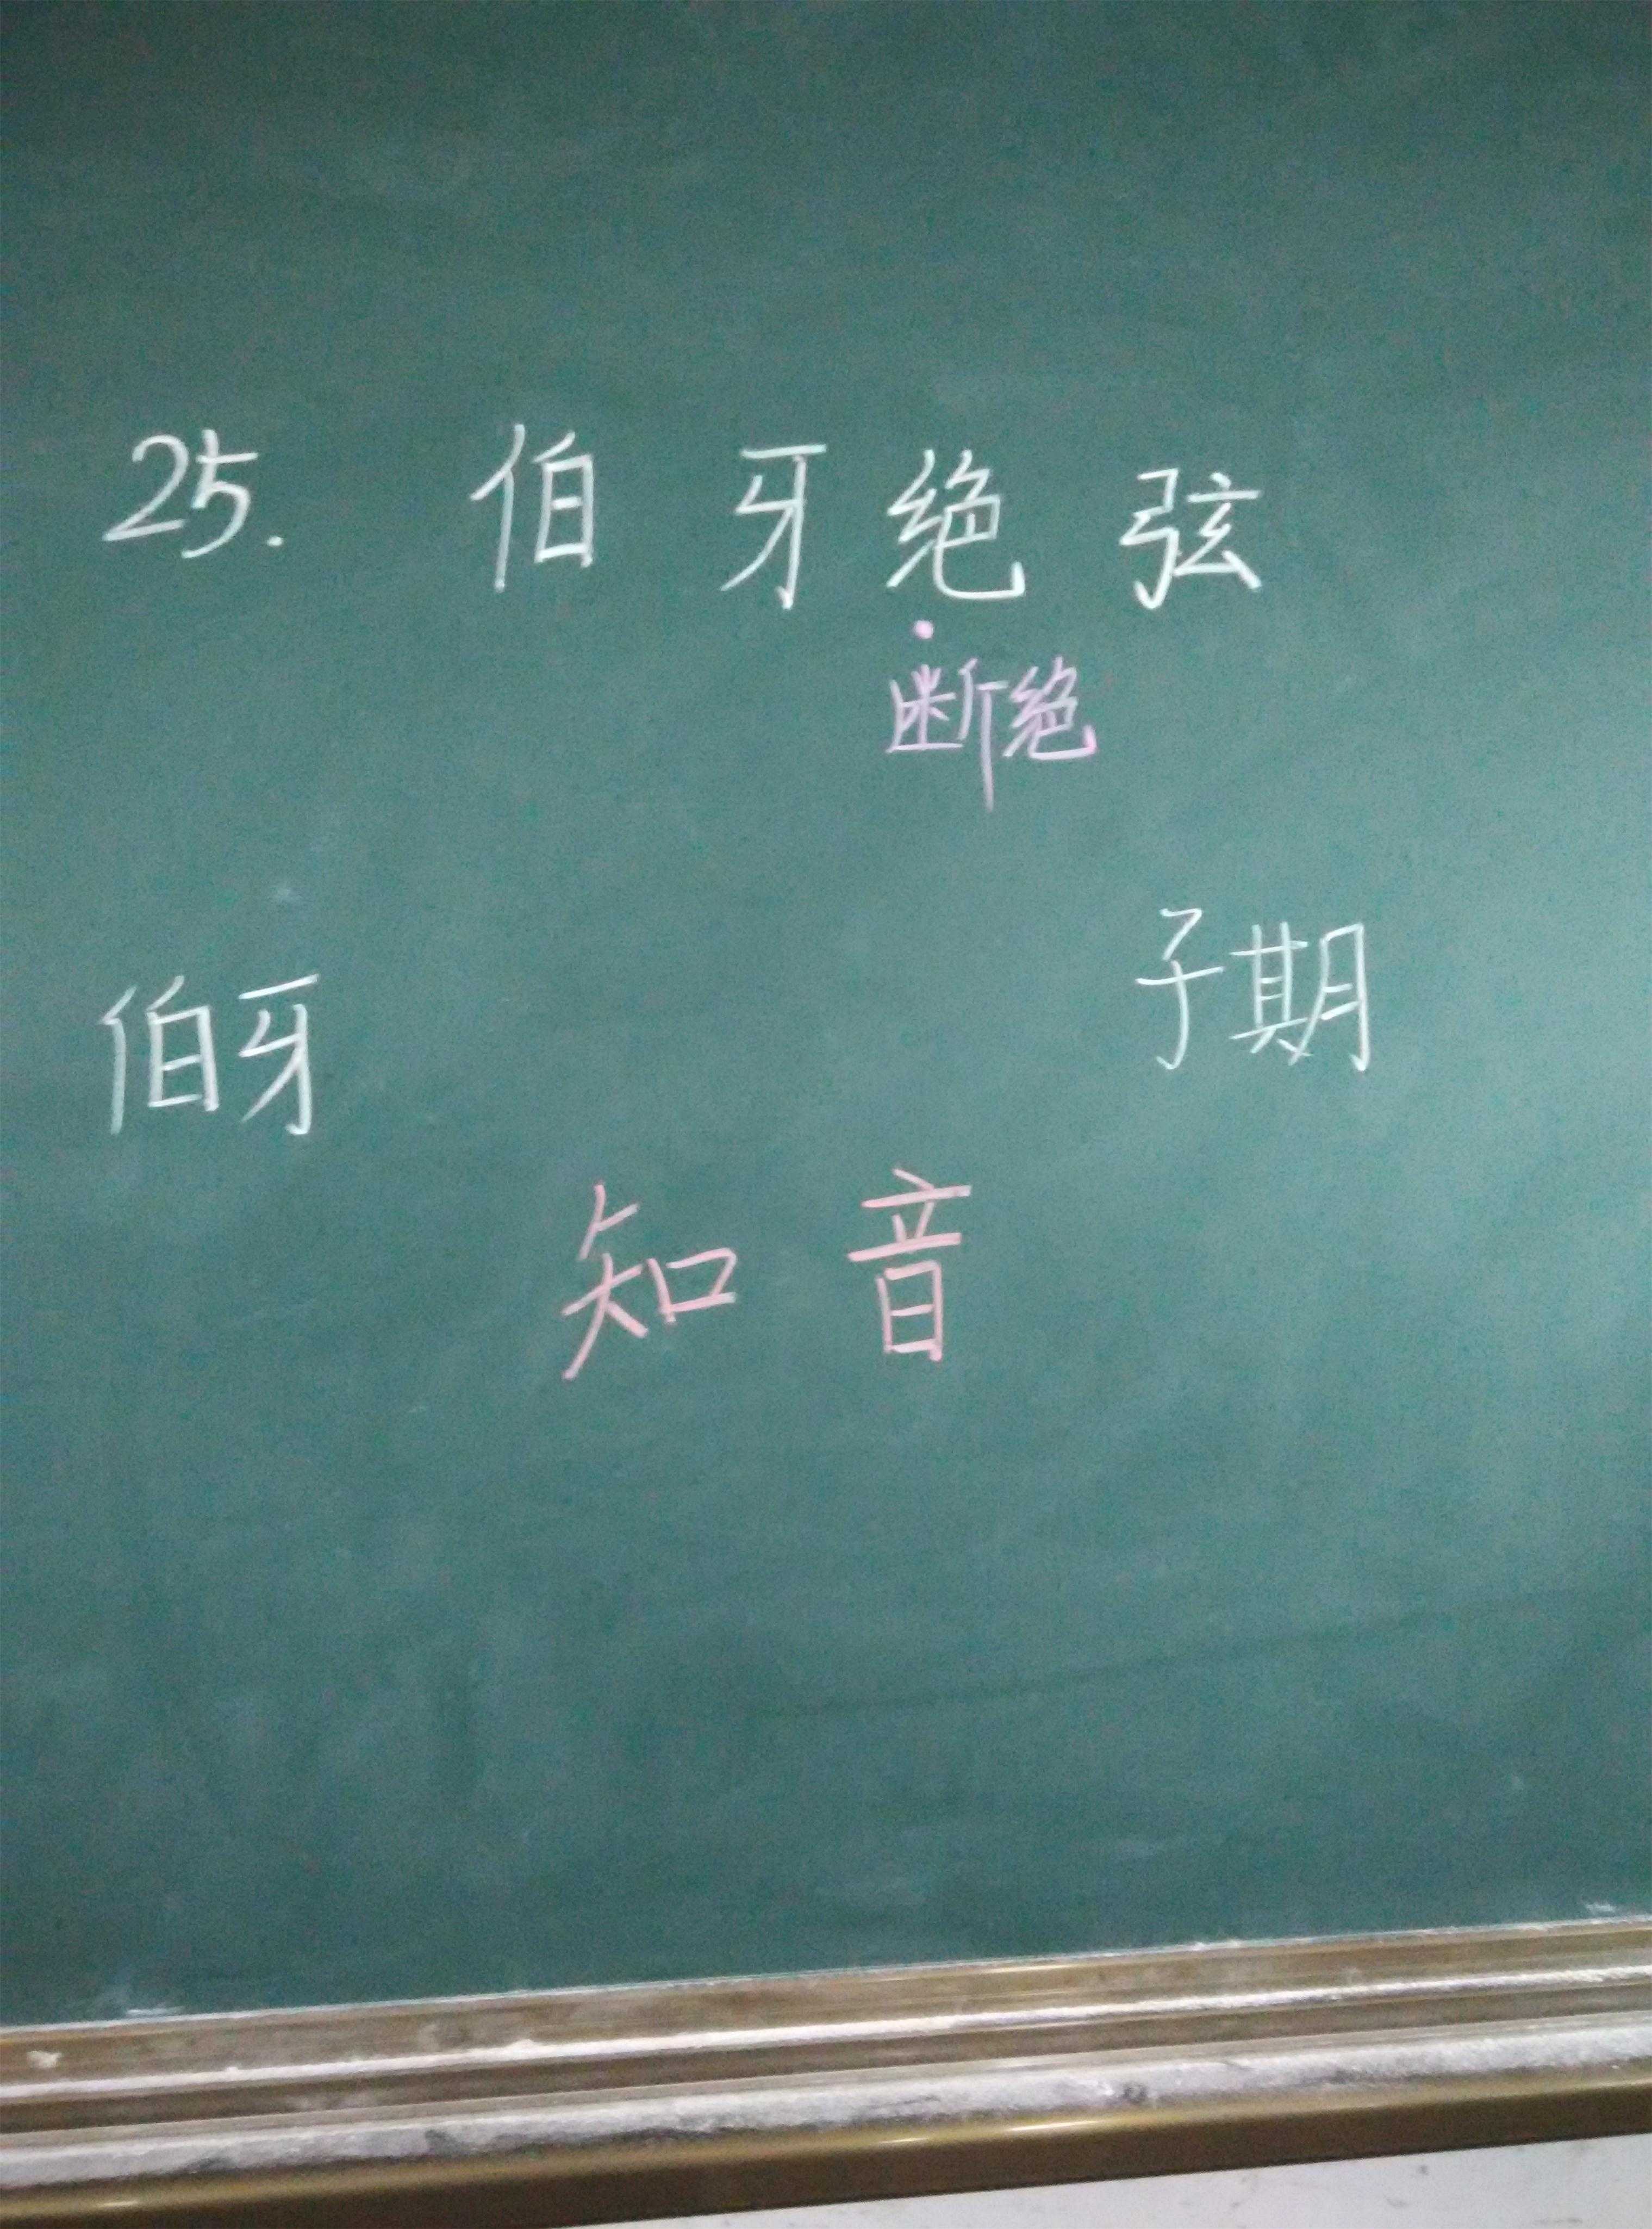 25. 伯牙绝弦
断绝
伯牙 子期
知音